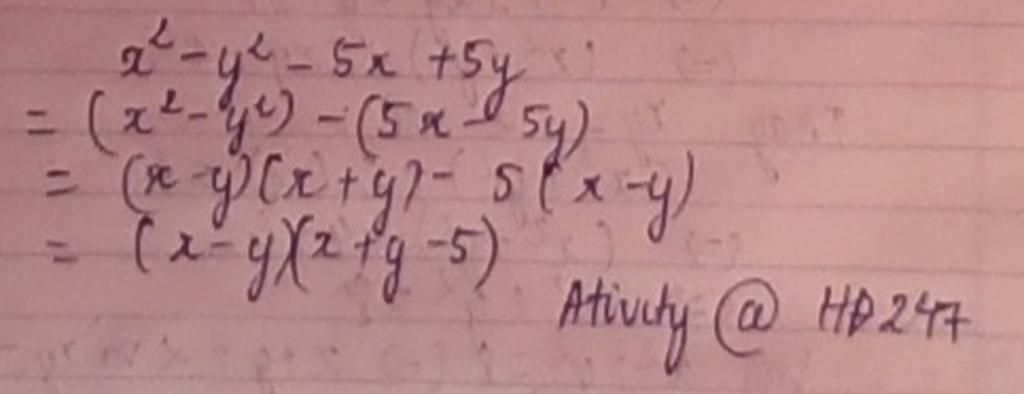 x² - y² - 5x + 5y
= (x² - y²) - (5x - 5y)
= (x - y)(x + y) - 5(x - y)
= (x - y)(x + y - 5)
Ativity @ HD247